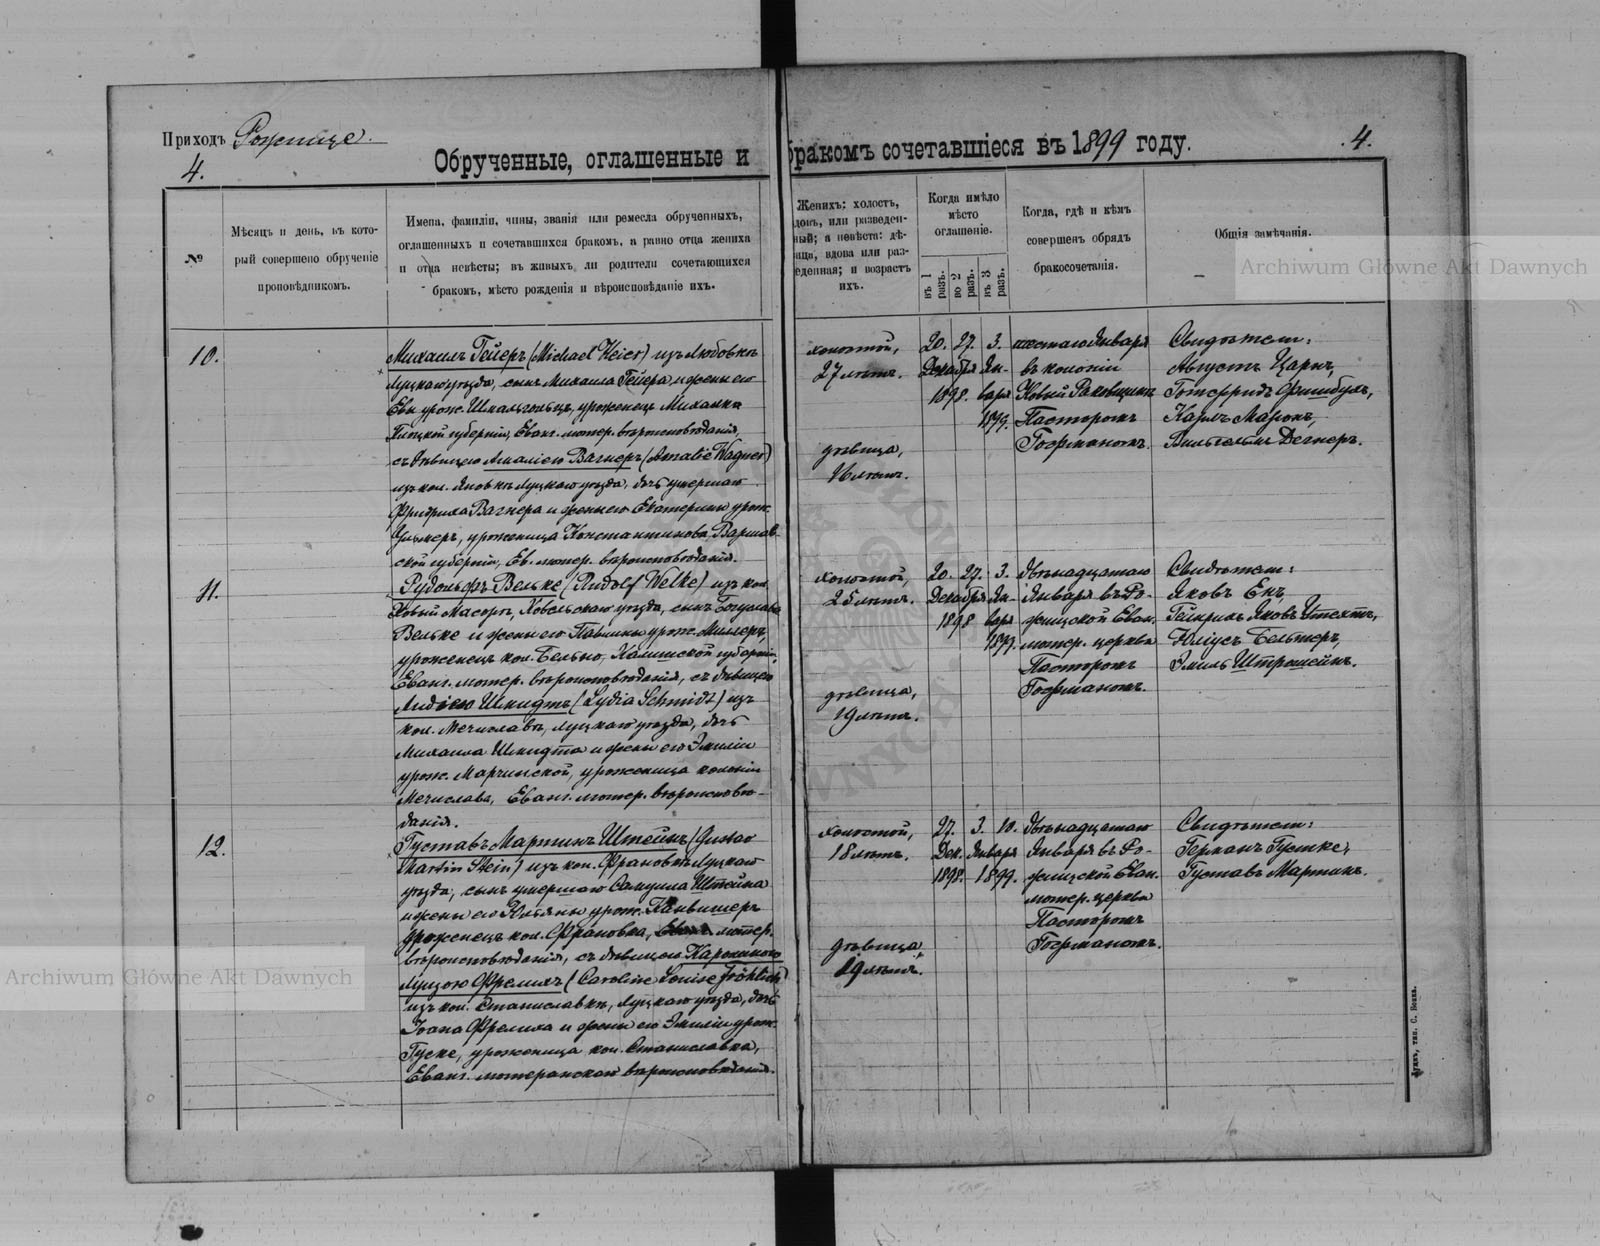 Приходъ Рожище.
4.
Обрученные, оглашенные и бракомъ сочетавшіеся въ 1899 году.
.4.
№
Мѣсяцъ и день, въ кото-
рый совершено обрученіе
проповѣдникомъ.
Имена, фамиліи, чины, званія или ремесла обрученныхъ,
оглашенныхъ и сочетавшихся бракомъ, а равно отца жениха
и отца невѣсты; въ живыхъ ли родители сочетающихся
бракомъ, мѣсто рожденія и вѣроисповѣданіе ихъ.
Женихъ: холостъ,
довъ, или разведен-
ный; а невѣста: дѣ-
ица, вдова или раз-
еденная; и возрастъ
ихъ.
Когда имѣло
мѣсто
оглашеніе.
въ 1 разъ.
во 2 разъ.
въ 3 разъ.
Когда, гдѣ и кѣмъ
совершенъ обрядъ
бракосочетанія.
Общія замѣчанія.
Archiwum Główne Akt Dawnych
10.
Михаилъ Гейеръ (Michael Heier) изъ Любовки
Луцкаго уѣзда, сынъ Михаила Гейера, и жены его
Евы урож. Шмальгольцъ, уроженецъ Михалка
Плоцкой губерніи, Еванг. лютер. вѣроисповѣданія,
съ дѣвицею Амаліею Вагнеръ (Amalie Wagner)
изъ кол. Яновки Луцкаго уѣзда, дочь умершаго
Фридриха Вагнера и жены его Екатерины урож.
уроженица Константинова Варшав-
ской губерніи, Ев. лютер. вѣроисповѣданія.
холостой,
27 лѣтъ.
дѣвица,
лѣтъ.
20. 27. 3.
Декабря Ян-
1898. варя
1899.
шестаго Января
въ колоніи
Новый Раковщизна
Пасторомъ
Гофманомъ.
Свидѣтели:
Августъ Царнъ,
Готфридъ Фишбухъ,
Карлъ Марокъ,
Вильгельмъ Дегнеръ.
11.
Рудольфъ Вельке (Rudolf Welke) изъ кол.
Новый Масоръ, Ковельскаго уѣзда, сынъ Богуслава
Вельке и жены его Павлины урож. Миллеръ,
уроженецъ кол. Бельно, Калишской губерніи,
Еванг. лютер. вѣроисповѣданія, съ дѣвицею
Лидіею Шмидтъ (Lydia Schmidt) изъ
кол. Мечиславъ, Луцкаго уѣзда, дочь
Михаила Шмидта и жены его Эмиліи
урож. Марчинской, уроженица колоніи
Мечислава, Еванг. лютер. вѣроисповѣ-
данія.
холостой,
25 лѣтъ.
дѣвица,
19 лѣтъ.
20. 27. 3.
Декабря Ян-
1898 варя
1899.
двѣнадцатаго
Января въ Ро-
жищской Еван.
лютер. церкви
Пасторомъ
Гофманомъ.
Свидѣтели:
Яковъ Енъ,
Гейнрихъ Яковъ Штехтъ,
Юліусъ Бельтеръ,
Эмиль Штрошейнъ.
12.
Густавъ Мартинъ Штейнъ (Gustav
Martin Stein) изъ кол. Франовки Луцкаго
уѣзда, сынъ умершаго Самуила Штейна
и жены его Юліяны урож. Канвишеръ
уроженецъ кол. Франовка, лютер.
вѣроисповѣданія, съ дѣвицею Каролиною
Луизою Фрелихъ (Caroline Louise Fröhlich)
изъ кол. Станиславки, Луцкаго уѣзда, дочь
Іоана Фрелиха и жены его Эмиліи урож.
Гуске, уроженица кол. Станиславка,
Еванг. лютеранскаго вѣроисповѣданія.
холостой,
18 лѣтъ.
дѣвица,
19 лѣтъ.
27. 3. 10.
Дек. Января
1898. 1899.
двѣнадцатаго
Января въ Ро-
жищской Еван.
лютер. церкви
Пасторомъ
Гофманомъ.
Свидѣтели:
Германъ Густке,
Густавъ Мартинъ.
Archiwum Główne Akt Dawnych